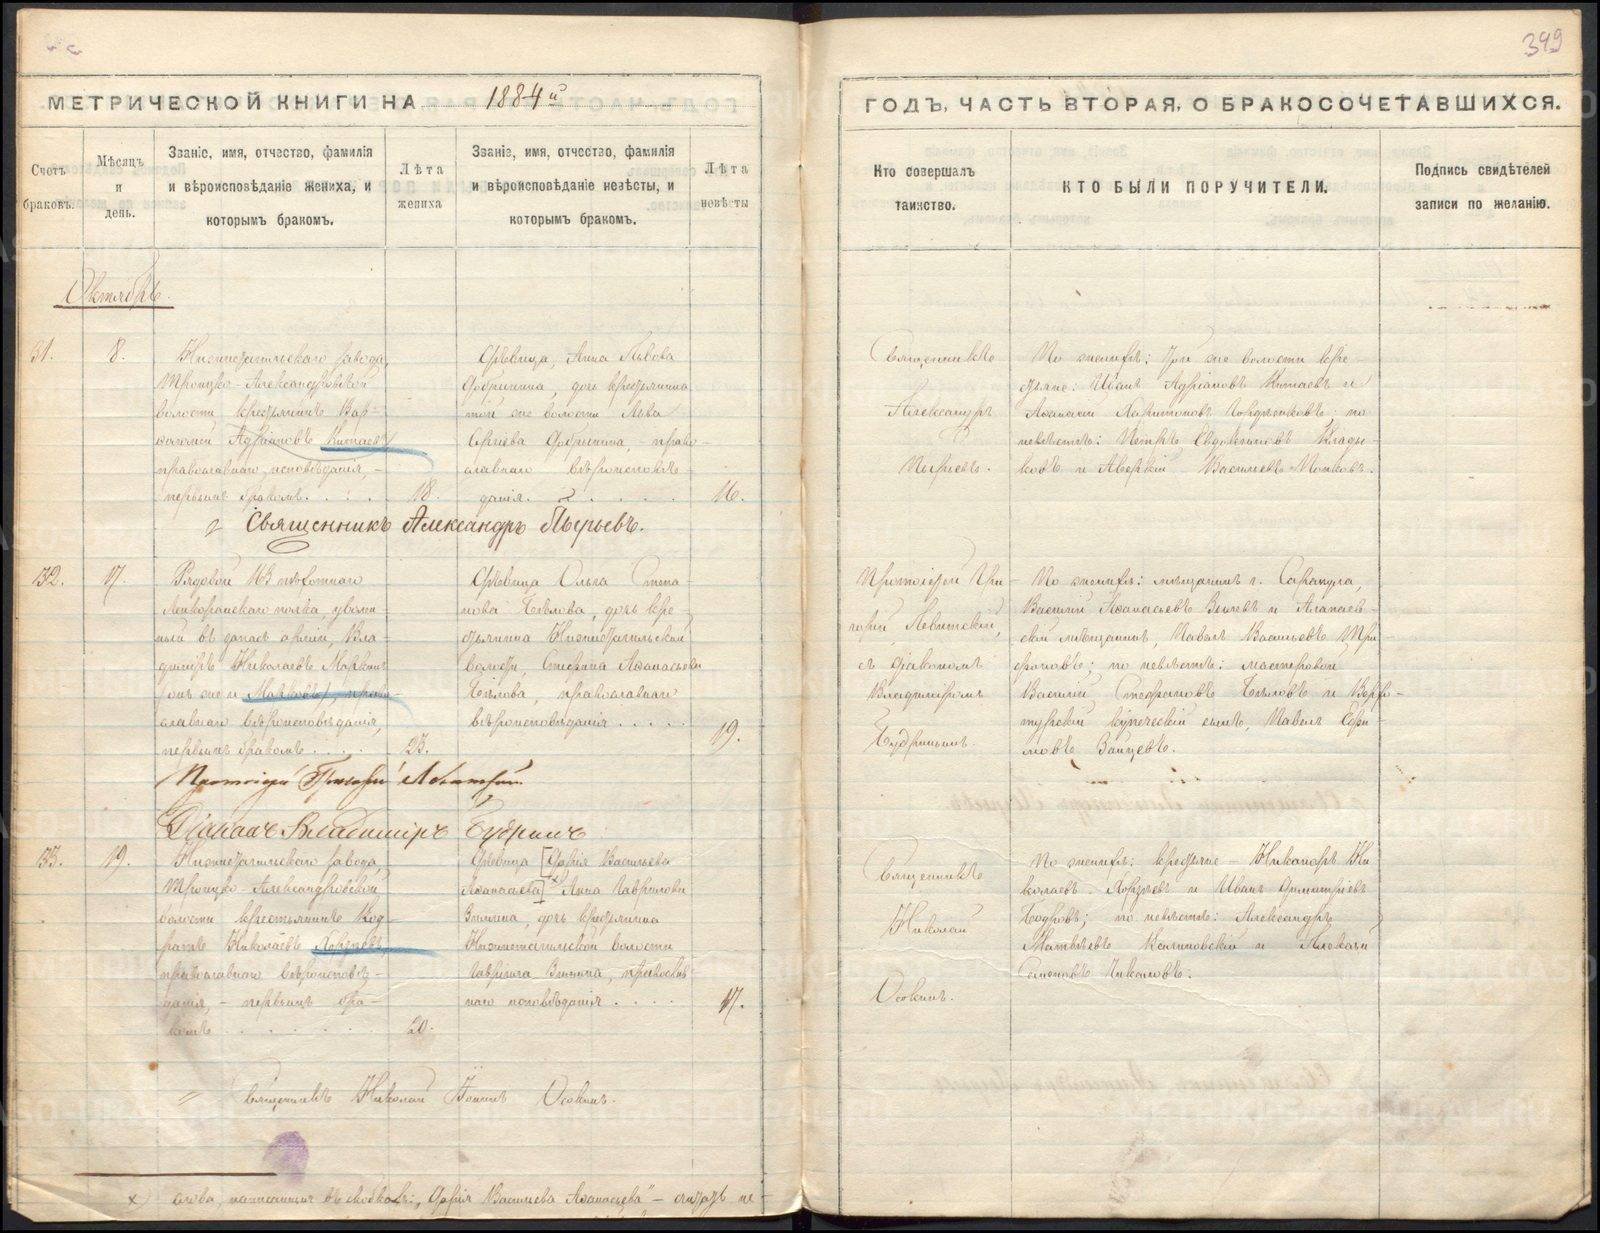 349
МЕТРИЧЕСКОЙ КНИГИ НА 1884й
ГОДЪ, ЧАСТЬ ВТОРАЯ, О БРАКОСОЧЕТАВШИХСЯ.
Счетъ браковъ.
Мѣсяцъ и день.
Званіе, имя, отчество, фамилія
и вѣроисповѣданіе жениха, и
которымъ бракомъ.
Лѣта жениха
Званіе, имя, отчество, фамилія
и вѣроисповѣданіе невѣсты, и
которымъ бракомъ.
Лѣта невѣсты
Кто совершалъ
таинство.
КТО БЫЛИ ПОРУЧИТЕЛИ.
Подпись свидѣтелей
записи по желанію.
Октябрь.
31.
8.
Нижнетагильскаго завода,
Троицко-Александровской
волости крестьянинъ Вар-
Адріановъ Китаевъ
православнаго исповѣданія,
первымъ бракомъ.
18.
Дѣвица, Анна Львова
Добрынина, дочь крестьянина
той же волости Льва
Сергѣева Добрынина, право-
славнаго вѣроисповѣ-
данія.
16.
Священникъ
Александръ
Пырьевъ.
По женихѣ: той же волости кре-
стьяне: Иванъ Адріановъ Китаевъ и
Аѳанасій Харитоновъ по
невѣстѣ: Петръ Евдокимовъ Клады-
ковъ и Аверкій Васильевъ
Священникъ Александръ Пырьевъ.
32.
17.
Рядовой 163 пѣхотнаго
Ленкоранскаго полка, уволен-
ный въ запасъ арміи, Вла-
диміръ Николаевъ Маркинъ
онъ же и право-
славнаго вѣроисповѣданія,
первымъ бракомъ
23.
Дѣвица Ольга Степа-
нова Бѣлова, дочь кре-
стьянина Нижнетагильской
волости, Стефана Аѳанасьева
Бѣлова, православнаго
вѣроисповѣданія
19.
Протоіерей Гри-
горій Левитскій,
съ діакономъ
Владиміромъ
Будринымъ.
По женихѣ: мѣщанинъ г. Сарапула,
Василій Аѳанасьевъ и Алапаев-
скій мѣщанинъ, Павелъ Васильевъ Три-
фоновъ; по невѣстѣ: мастеровой
Василій Стефановъ Бѣловъ и Верхо-
турскій купеческій сынъ, Павелъ Ефи-
мовъ Зайцевъ.
Протоіерей Григорій Левитскій
Діаконъ Владиміръ Будринъ
33.
19.
Нижнетагильскаго завода,
Троицко-Александровской
волости крестьянинъ Код-
ратъ Николаевъ
православнаго вѣроисповѣ-
данія, – первымъ бра-
комъ
20.
Дѣвица [Дарія Васильева
Аѳанасьева] х Анна Гаврилова
Зимина, дочь крестьянина
Нижнетагильской волости
Гавріила Зимина, православ-
наго исповѣданія
17.
Священникъ
Николай
Осокинъ.
По женихѣ: крестьяне – Никаноръ Ни-
колаевъ и Иванъ Димитріевъ
Бодровъ; по невѣстѣ: Александръ
Матвѣевъ Калиновскій и Алексѣй
Семеновъ
Священникъ Николай Осокинъ.
х) слова, написанныя въ скобкахъ: „Дарія Васильева Аѳанасьева" – считать не-